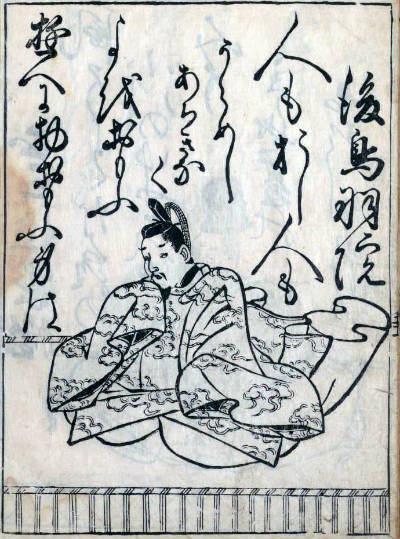 後鳥羽院
人もおし人も
うらめし
あちきなく
よをおもふ
ゆへに物おもふ身は